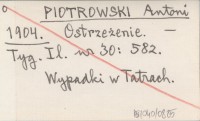 PIOTROWSKI Antoni
1904. Ostrzeżenie. —
Tyg. Il. nr 30: 582.
Wypadki w Tatrach.